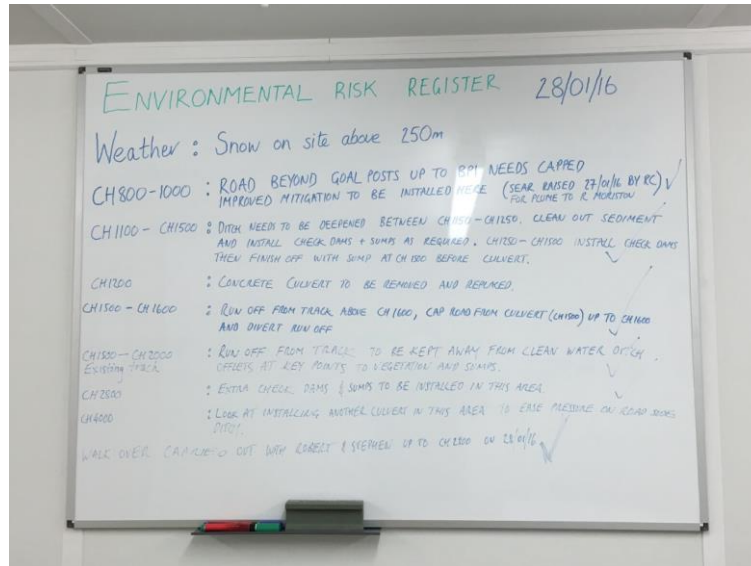 ENVIRONMENTAL RISK REGISTER 28/01/16
Weather : Snow on site above 250m
CH800-1000 : ROAD BEYOND GOAL POSTS UP TO BP1 NEEDS CAPPED
IMPROVED MITIGATION TO BE INSTALLED HERE (SEAR RAISED 27/01/16 BY RC)
FOR PLUME TO R MORISTON
CH1100 - CH1500 : DITCH NEEDS TO BE DEEPENED BETWEEN - CH1250. CLEAN OUT SEDIMENT
AND INSTALL CHECK DAMS + SUMPS AS REQUIRED. CH1250 - CH1500 INSTALL CHECK DAMS
THEN FINISH OFF WITH SUMP AT BEFORE CULVERT.
CH1200 : CONCRETE CULVERT TO BE REMOVED AND REPLACED.
CH1500 - CH1600 : RUN OFF FROM TRACK ABOVE CH1600, CAP ROAD FROM CULVERT (CH1500) UP TO CH1600
AND DIVERT RUN OFF
- CH2000 : RUN OFF FROM TRACK TO BE KEPT AWAY FROM CLEAN WATER DITCH.
Existing track OFFLETS AT KEY POINTS TO VEGETATION AND SUMPS.
: EXTRA CHECK DAMS & SUMPS TO BE INSTALLED IN THIS AREA
CH4000 : LOOK AT INSTALLING ANOTHER CULVERT IN THIS AREA TO EASE PRESSURE ON ROAD SIDES
DITCH.
WALK OVER CARRIED OUT WITH ROBERT & STEPHEN UP TO ON 28/01/16